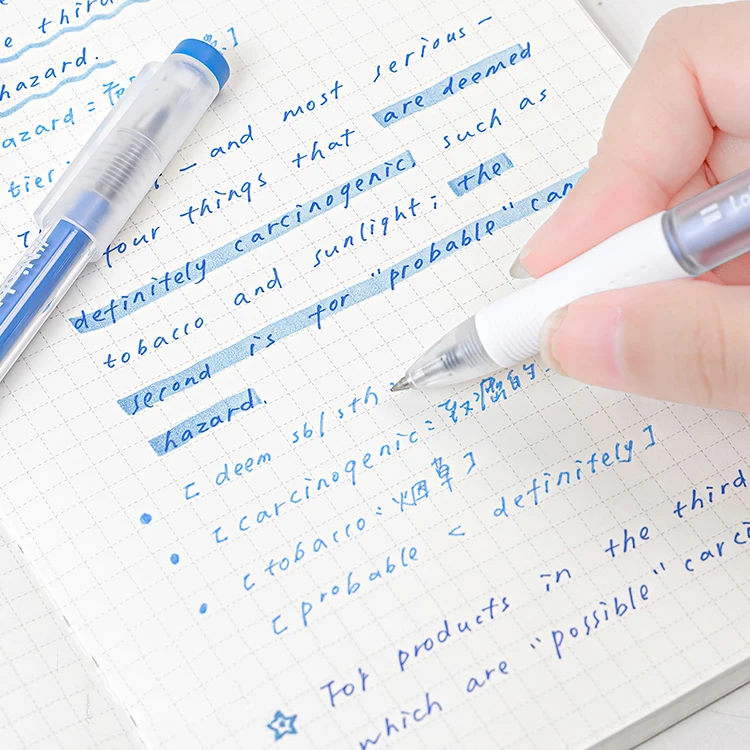 e third
hazard.
azard =
tier
— and most serious —
four things that are deemed
definitely carcinogenic, such as
tobacco and sunlight; the
second is for "probable" can
hazard.
[ deem sb/sth
[ carcinogenic: 致癌的
[ tobacco: 烟草 ]
[ probable < definitely ]
For products in the third
which are "possible" carci